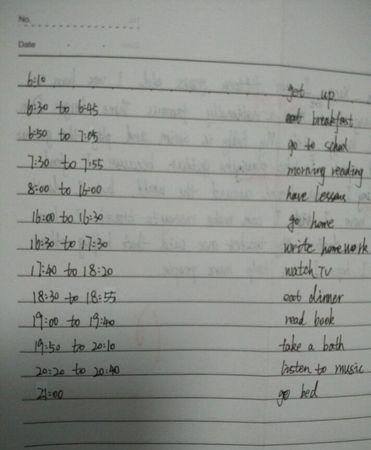 No.
Date
6:10 got up
6:30 to 6:45 eat breakfast
6:50 to 7:05 go to school
7:30 to 7:55 morning reading
8:00 to 16:00 have lessons
16:00 to 16:30 go home
16:30 to 17:30 write homework
17:40 to 18:20 watch TV
18:30 to 18:55 eat dinner
19:00 to 19:40 read book
19:50 to 20:10 take a bath
20:20 to 20:40 listen to music
21:00 go bed